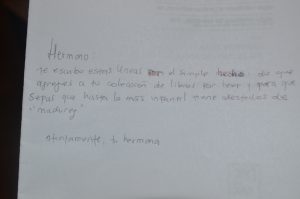 Hermano:
Te escribo estas líneas por el simple hecho de que
agregues a tu colección de libros por leer y para que
sepas que hasta lo más infantil tiene destellos de
"madurez"
Atentamente, tu hermana